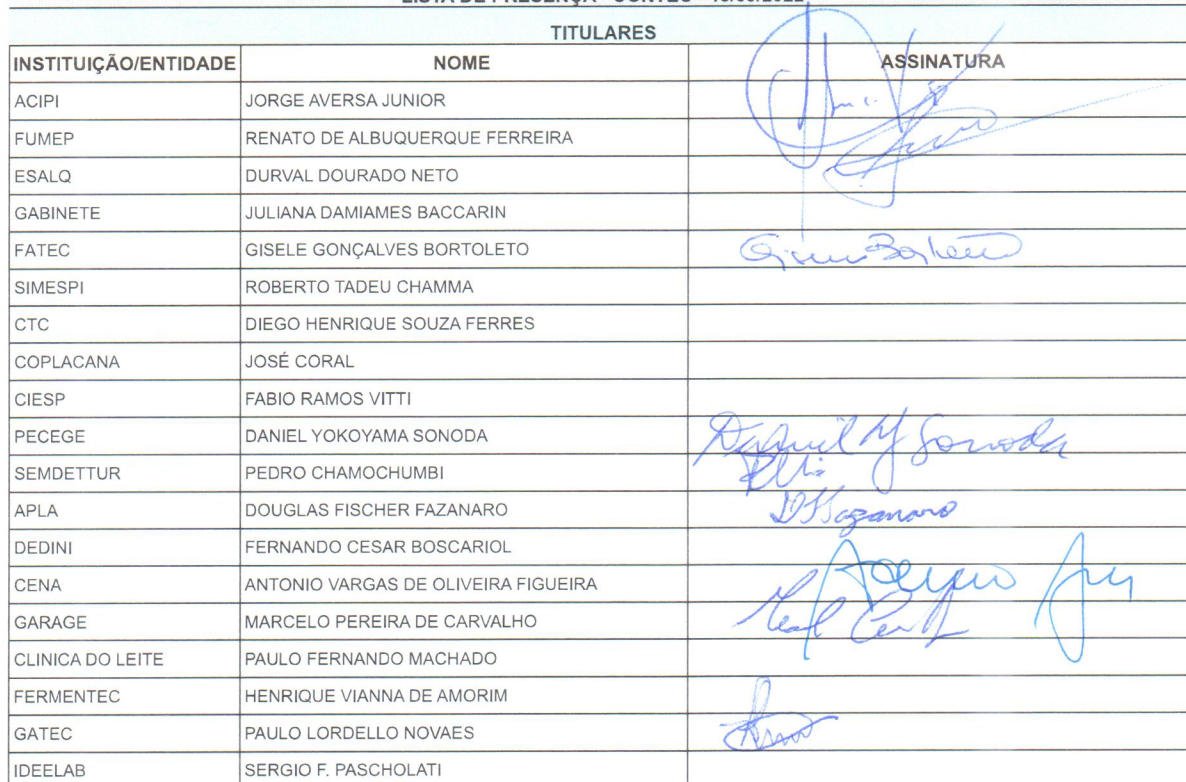 LISTA DE PRESENÇA
TITULARES
INSTITUIÇÃO/ENTIDADE NOME ASSINATURA
ACIPI JORGE AVERSA JUNIOR
FUMEP RENATO DE ALBUQUERQUE FERREIRA
ESALQ DURVAL DOURADO NETO
GABINETE JULIANA DAMIAMES BACCARIN
FATEC GISELE GONÇALVES BORTOLETO
SIMESPI ROBERTO TADEU CHAMMA
CTC DIEGO HENRIQUE SOUZA FERRES
COPLACANA JOSÉ CORAL
CIESP FABIO RAMOS VITTI
PECEGE DANIEL YOKOYAMA SONODA Daniel Y Sonoda
SEMDETTUR PEDRO CHAMOCHUMBI
APLA DOUGLAS FISCHER FAZANARO DFFazanaro
DEDINI FERNANDO CESAR BOSCARIOL
CENA ANTONIO VARGAS DE OLIVEIRA FIGUEIRA
GARAGE MARCELO PEREIRA DE CARVALHO
CLINICA DO LEITE PAULO FERNANDO MACHADO
FERMENTEC HENRIQUE VIANNA DE AMORIM
GATEC PAULO LORDELLO NOVAES
IDEELAB SERGIO F. PASCHOLATI